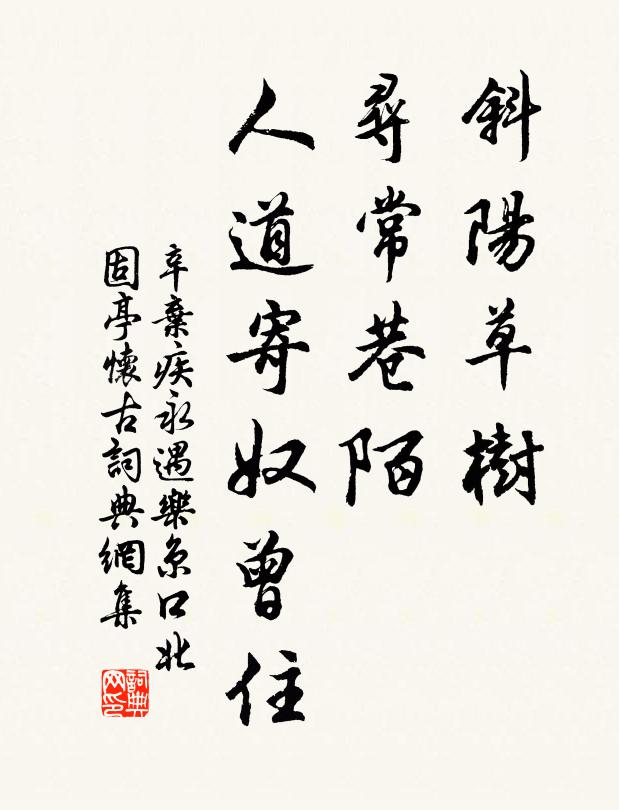 斜陽草樹
尋常巷陌
人道寄奴曾住
辛棄疾永遇樂京口北
固亭懷古詞典網集
詞典
网印